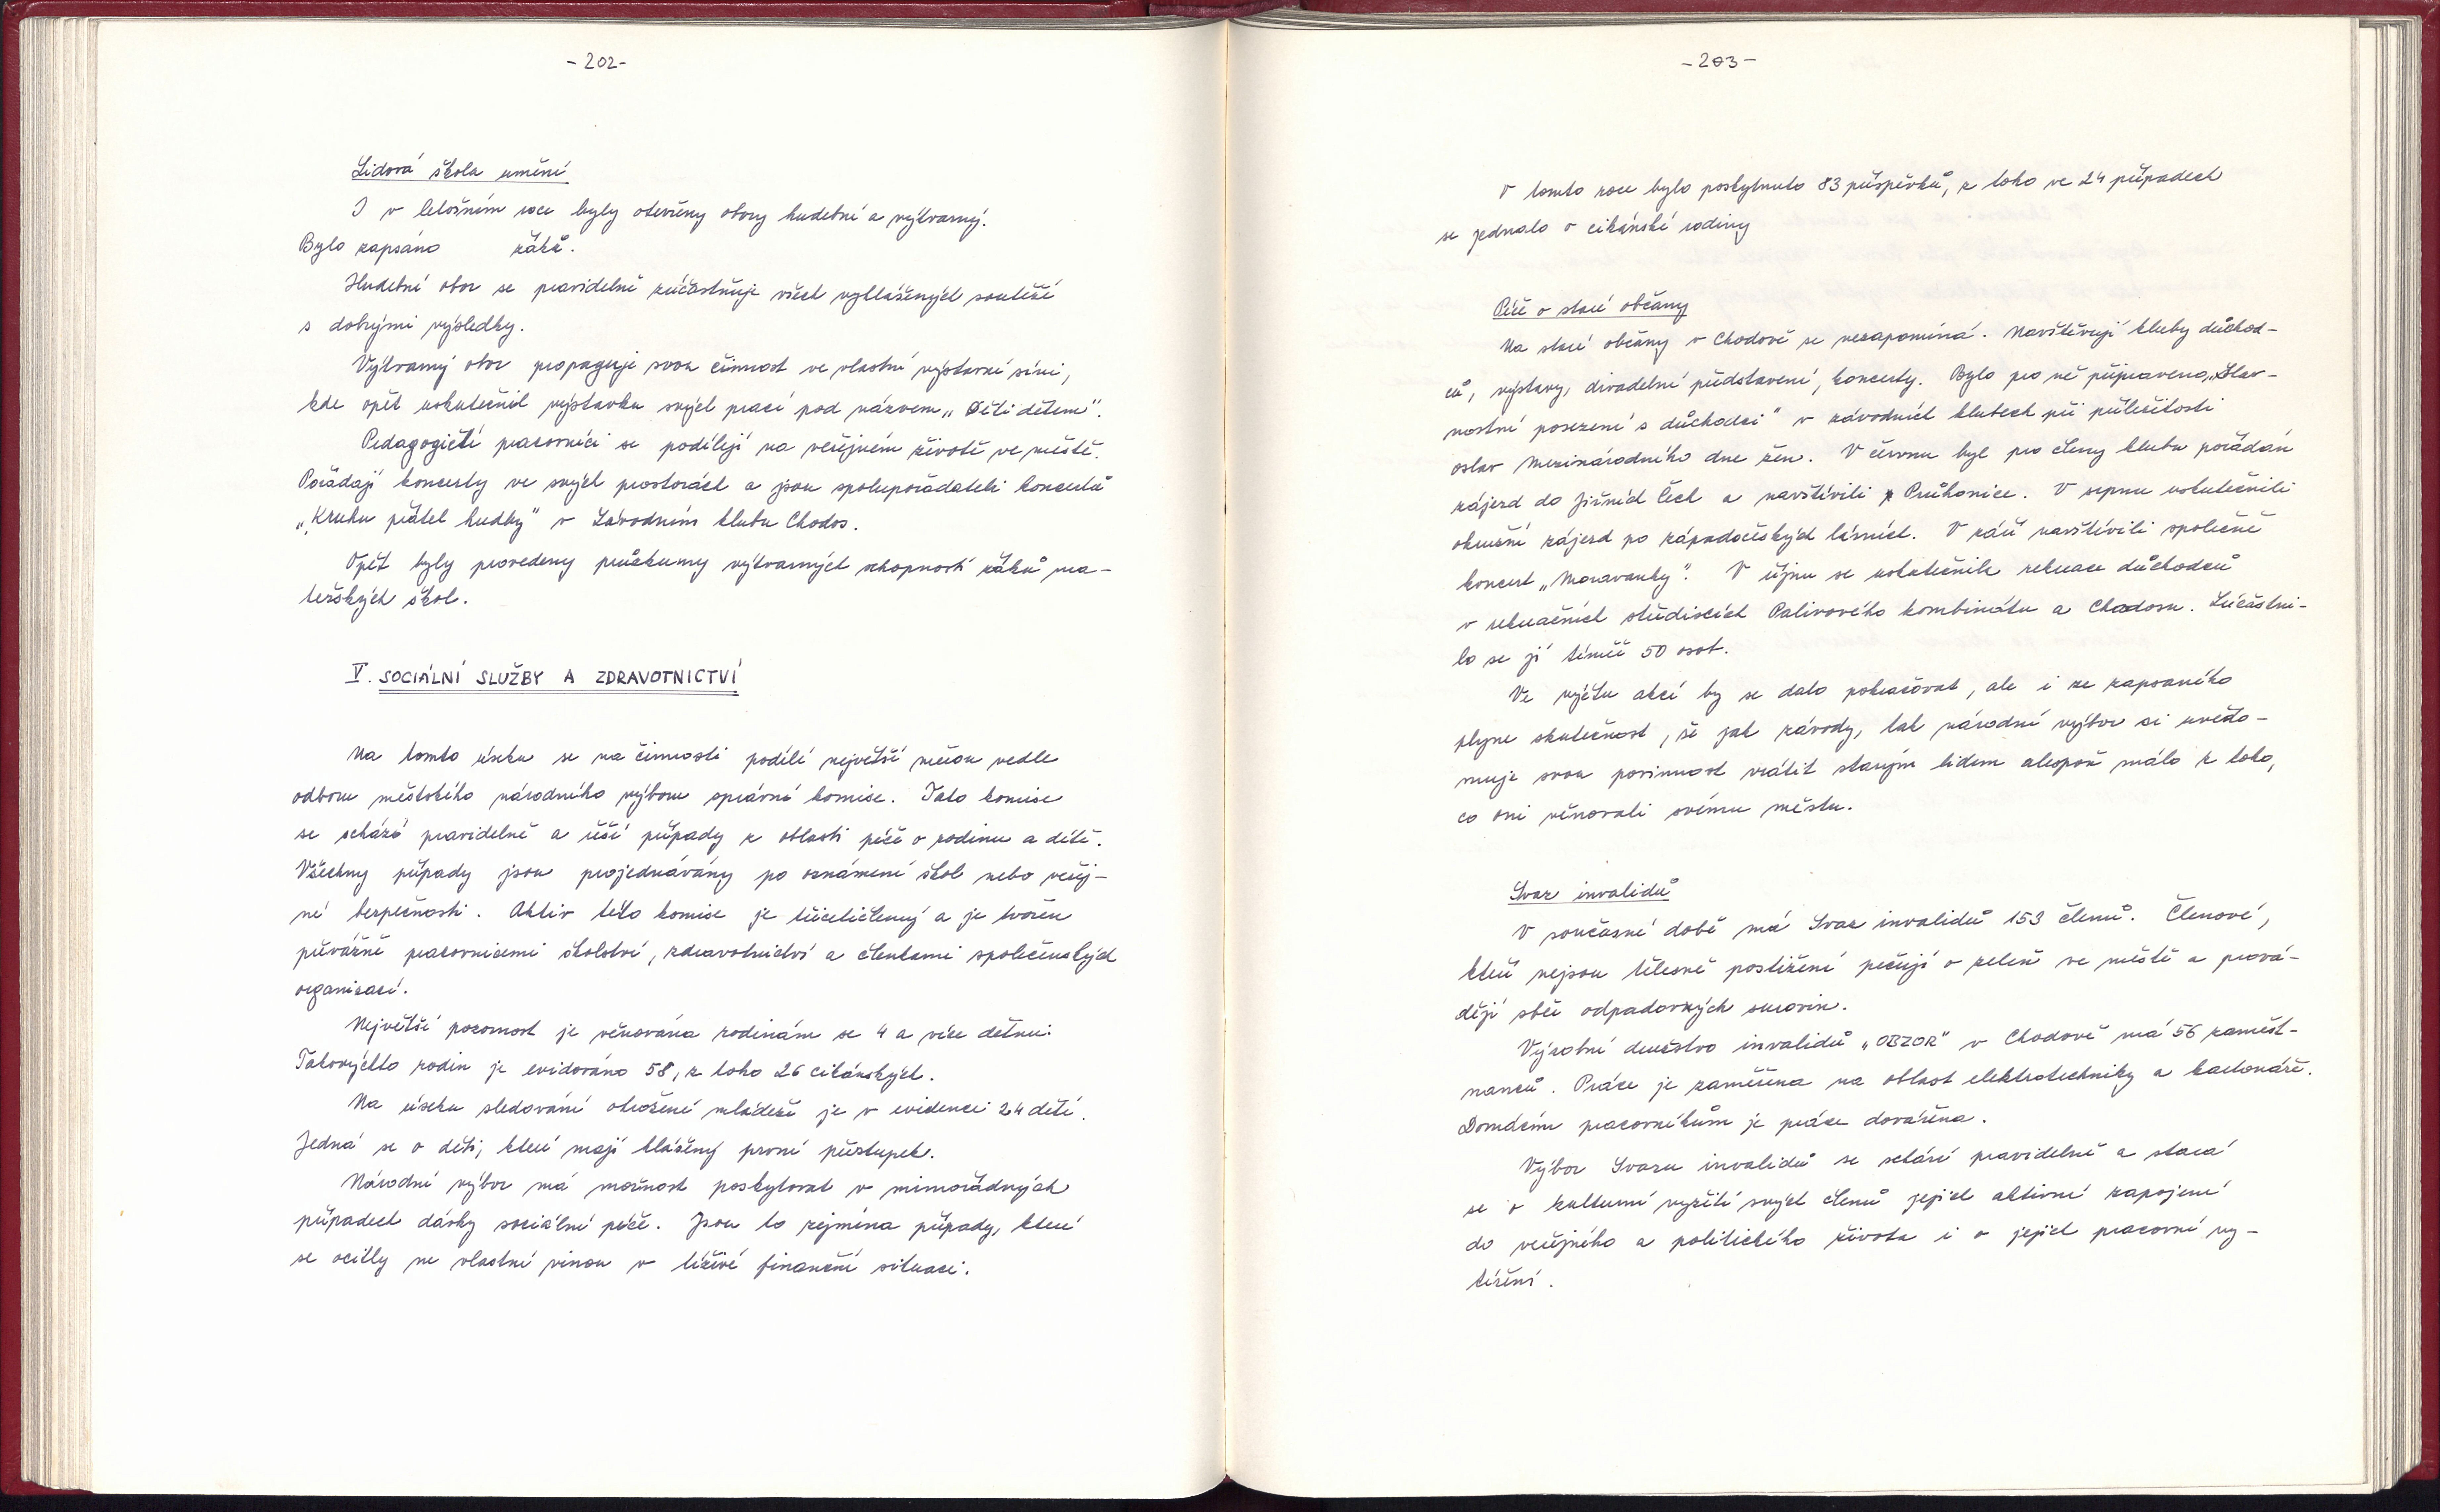 - 202 -
Lidová škola umění
I v letošním roce byly otevřeny obory hudební a výtvarný.
Bylo zapsáno žáků.
Hudební obor se pravidelně zúčastňuje všech vyhlášených soutěží
s dobrými výsledky.
Výtvarný obor propaguje svou činnost ve vlastní výstavní síni,
kde opět uskutečnil výstavku svých prací pod názvem „Děti dětem".
Pedagogičtí pracovníci se podílejí na veřejném životě ve městě.
Pořádají koncerty ve svých prostorách a jsou spolupořadateli koncertů
„Kruhu přátel hudby" v Závodním klubu Chodos.
Opět byly provedeny průzkumy výtvarných schopností žáků ma-
teřských škol.
V. SOCIÁLNÍ SLUŽBY A ZDRAVOTNICTVÍ
Na tomto úseku se na činnosti podílí největší měrou vedle
odboru městského národního výboru správní komise. Tato komise
se schází pravidelně a řeší případy z oblasti péče o rodinu a dítě.
Všechny případy jsou projednávány po oznámení škol nebo veřej-
né bezpečnosti. Aktiv této komise je třicetičlenný a je tvořen
převážně pracovnicemi školství, zdravotnictví a členkami společenských
organizací.
Největší pozornost je věnována rodinám se 4 a více dětmi.
Takovýchto rodin je evidováno 58, z toho 26 cikánských.
Na úseku sledování ohrožené mládeže je v evidenci 24 dětí.
Jedná se o děti, které mají hlášený první přestupek.
Národní výbor má možnost poskytovat v mimořádných
případech dávky sociální péče. Jsou to zejména případy, které
se ocitly ne vlastní vinou v tíživé finanční situaci.
- 203 -
V tomto roce bylo poskytnuto 83 příspěvků, z toho ve 24 případech
se jednalo o cikánské rodiny
Péče o staré občany
Na staré občany v Chodově se nezapomíná. Navštěvují kluby důchod-
ců, výstavy, divadelní představení, koncerty. Bylo pro ně připraveno „Slav-
nostní posezení s důchodci" v závodních klubech při příležitosti
oslav Mezinárodního dne žen. V červnu byl pro členy klubu pořádán
zájezd do Jižních Čech a navštívili Průhonice. V srpnu uskutečnili
okružní zájezd po západočeských lázních. V září navštívili společně
koncert „Moravanky". V říjnu se uskutečnila rekreace důchodců
v rekreačních střediscích Palivového kombinátu a Chodosu. Zúčastni-
lo se jí téměř 50 osob.
Ve výčtu akcí by se dalo pokračovat, ale i ze zapsaného
plyne skutečnost, že jak závody, tak národní výbor si uvědo-
muje svou povinnost vrátit starým lidem alespoň málo z toho,
co oni věnovali svému městu.
Svaz invalidů
V současné době má Svaz invalidů 153 členů. Členové,
kteří nejsou tělesně postižení pečují o zeleň ve městě a prová-
dějí sběr odpadových surovin.
Výrobní družstvo invalidů „OBZOR" v Chodově má 56 zaměst-
nanců. Práce je zaměřena na oblast elektrotechniky a kartonáže.
Domácím pracovníkům je práce dovážena.
Výbor Svazu invalidů se schází pravidelně a stará
se o kulturní vyžití svých členů jejich aktivní zapojení
do veřejného a politického života i o jejich pracovní vy-
tížení.